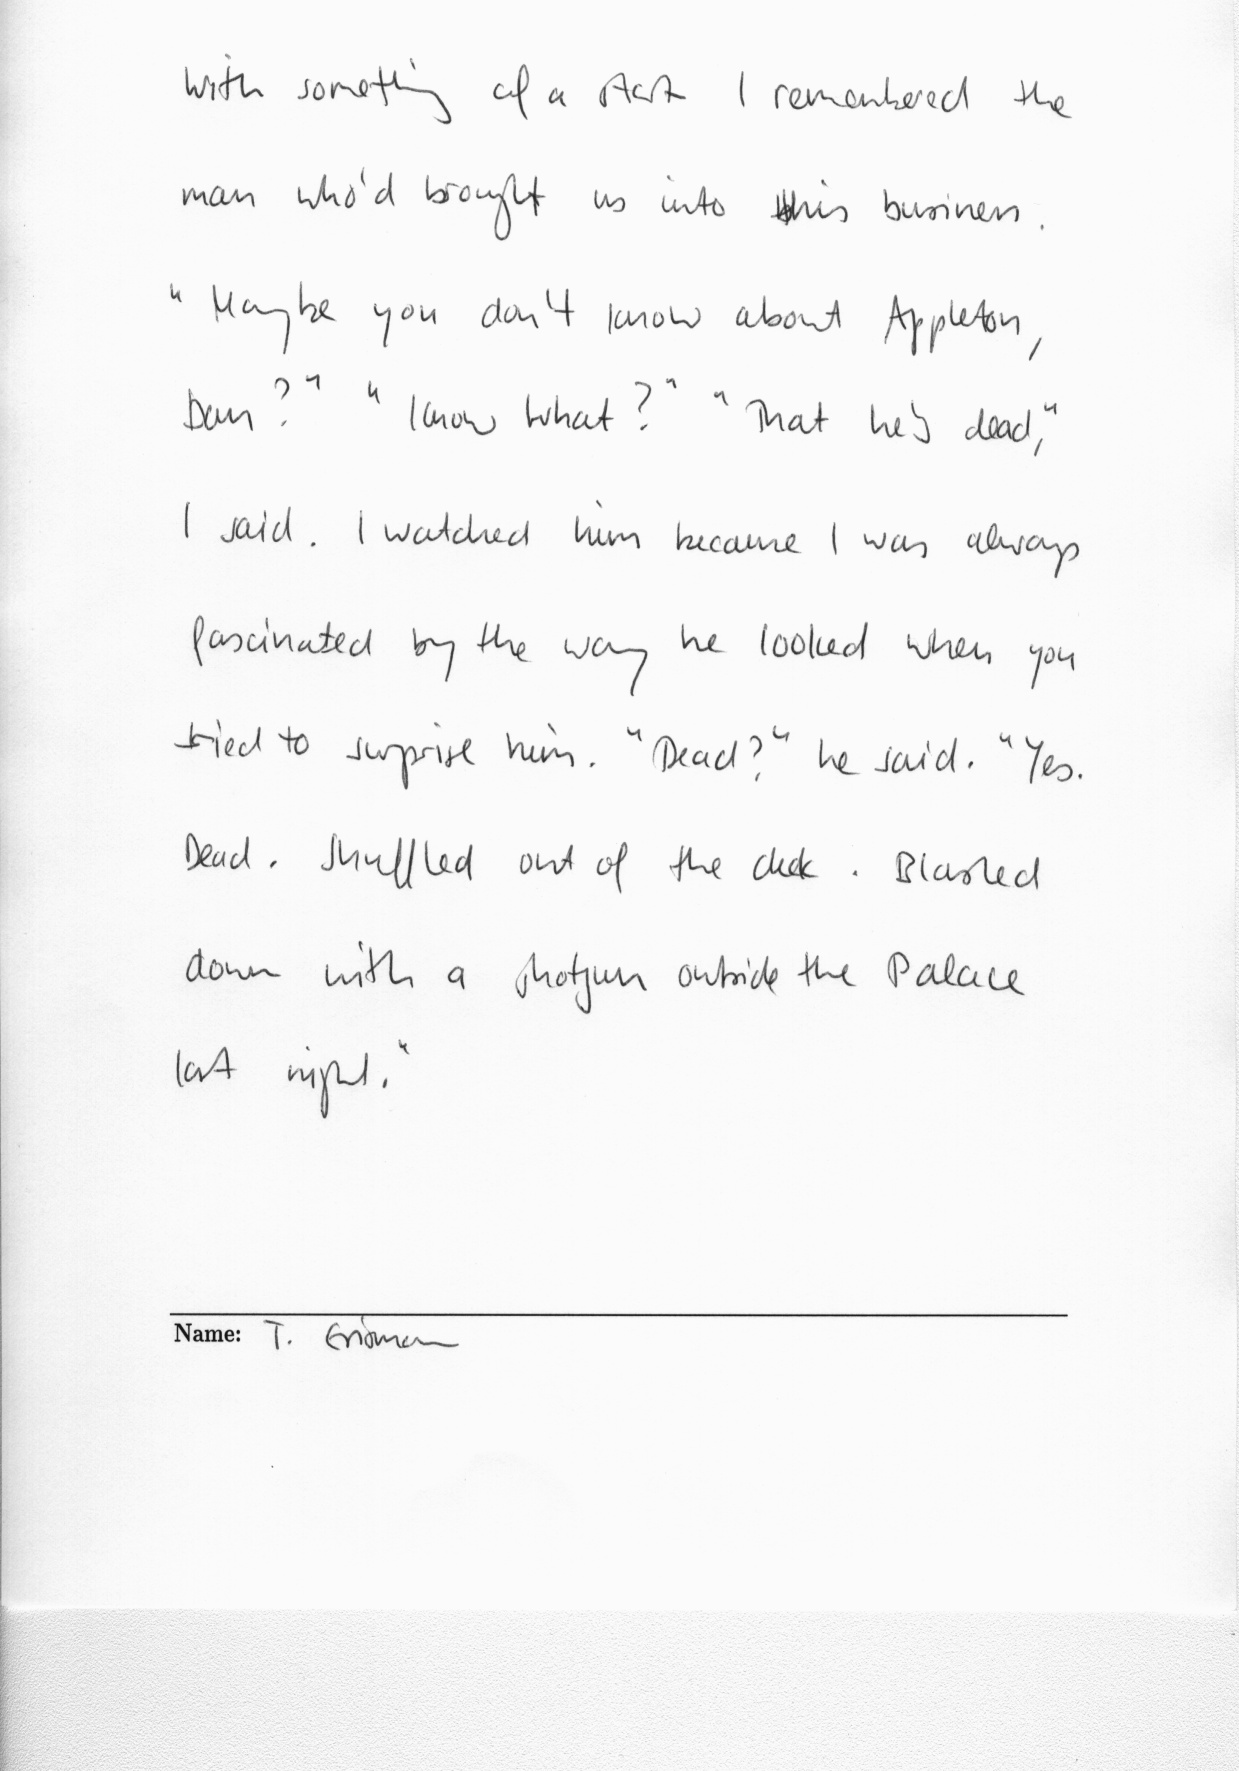 With something of a start I remembered the
man who'd brought us into this business.
"Maybe you don't know about Appleton,
Dan?" "Know what?" "That he's dead,"
I said. I watched him because I was always
fascinated by the way he looked when you
tried to surprise him. "Dead?" he said. "Yes.
Dead. Shuffled out of the deck. Blasted
down with a shotgun outside the Palace
last night."
Name: T.